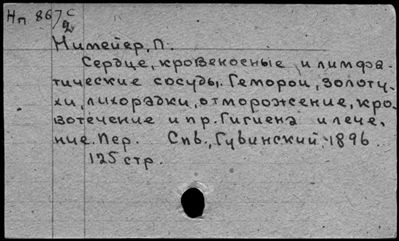 Нп 867с
2
Нимейер, П.
Сердце, кровеносные и лимфа-
тические сосуды. Геморои, золоту-
хи, лихорадки, отморожение, кро-
вотечение и пр. Гигиена и лече,
ние. Пер. Спб., Губинский, 1896
125 стр.